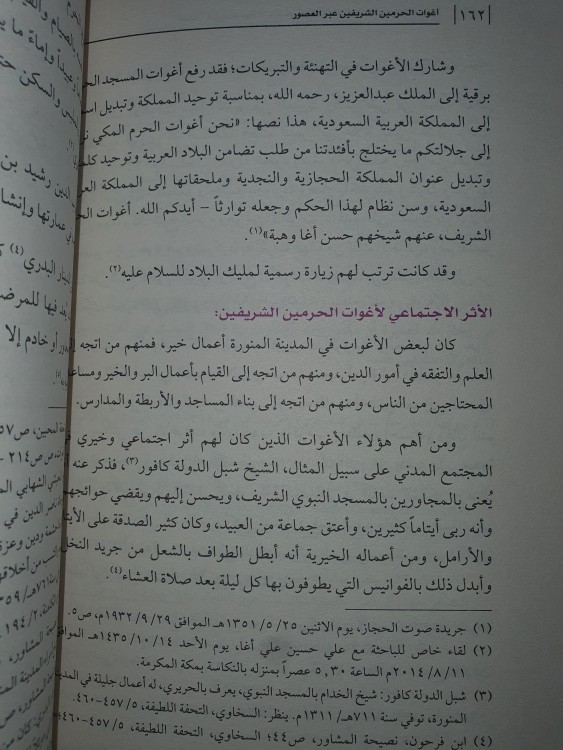 ١٦٢
أغوات الحرمين الشريفين عبر العصور
وشارك الأغوات في التهنئة والتبريكات؛ فقد رفع أغوات المسجد
برقية إلى الملك عبدالعزيز، رحمه الله، بمناسبة توحيد المملكة وتبديل
إلى المملكة العربية السعودية، هذا نصها: «نحن أغوات الحرم المكي
إلى جلالتكم ما يختلج بأفئدتنا من طلب تضامن البلاد العربية وتوحيد
وتبديل عنوان المملكة الحجازية والنجدية وملحقاتها إلى المملكة
السعودية، وسن نظام لهذا الحكم وجعله توارثاً – أيدكم الله. أغوات
الشريف، عنهم شيخهم حسن أغا وهبة»(١).
وقد كانت ترتب لهم زيارة رسمية لمليك البلاد للسلام عليه(٢).
الأثر الاجتماعي لأغوات الحرمين الشريفين:
كان لبعض الأغوات في المدينة المنورة أعمال خير، فمنهم من اتجه
العلم والتفقه في أمور الدين، ومنهم من اتجه إلى القيام بأعمال البر والخير
المحتاجين من الناس، ومنهم من اتجه إلى بناء المساجد والأربطة والمدارس.
ومن أهم هؤلاء الأغوات الذين كان لهم أثر اجتماعي وخيري
المجتمع المدني على سبيل المثال، الشيخ شبل الدولة كافور(٣)، فذكر عنه
يُعنى بالمجاورين بالمسجد النبوي الشريف، ويحسن إليهم ويقضي حوائجهم
وأنه ربى أيتاماً كثيرين، وأعتق جماعة من العبيد، وكان كثير الصدقة على
والأرامل، ومن أعماله الخيرية أنه أبطل الطواف بالشعل من جريد النخل
وأبدل ذلك بالفوانيس التي يطوفون بها كل ليلة بعد صلاة العشاء(٤).
(١) جريدة صوت الحجاز، يوم الاثنين ١٣٥١/٥/٢٥هـ الموافق ١٩٣٢/٩/٢٩م، ص٥.
(٢) لقاء خاص للباحثة مع علي حسين علي أغا، يوم الأحد ١٤٣٥/١٠/١٤هـ الموافق
٢٠١٤/٨/١١م الساعة ٥,٣٠ عصراً بمنزله بالنكاسة بمكة المكرمة.
(٣) شبل الدولة كافور: شيخ الخدام بالمسجد النبوي، يعرف بالحريري، له أعمال جليلة في
المنورة، توفي سنة ٧١١هـ/١٣١١م. ينظر: السخاوي، التحفة اللطيفة، ٤٥٧/٥-٤٦٠.
(٤) ابن فرحون، نصيحة المشاور، ص٤٤؛ السخاوي، التحفة اللطيفة، ٤٥٧/٥-٤٦٠؛